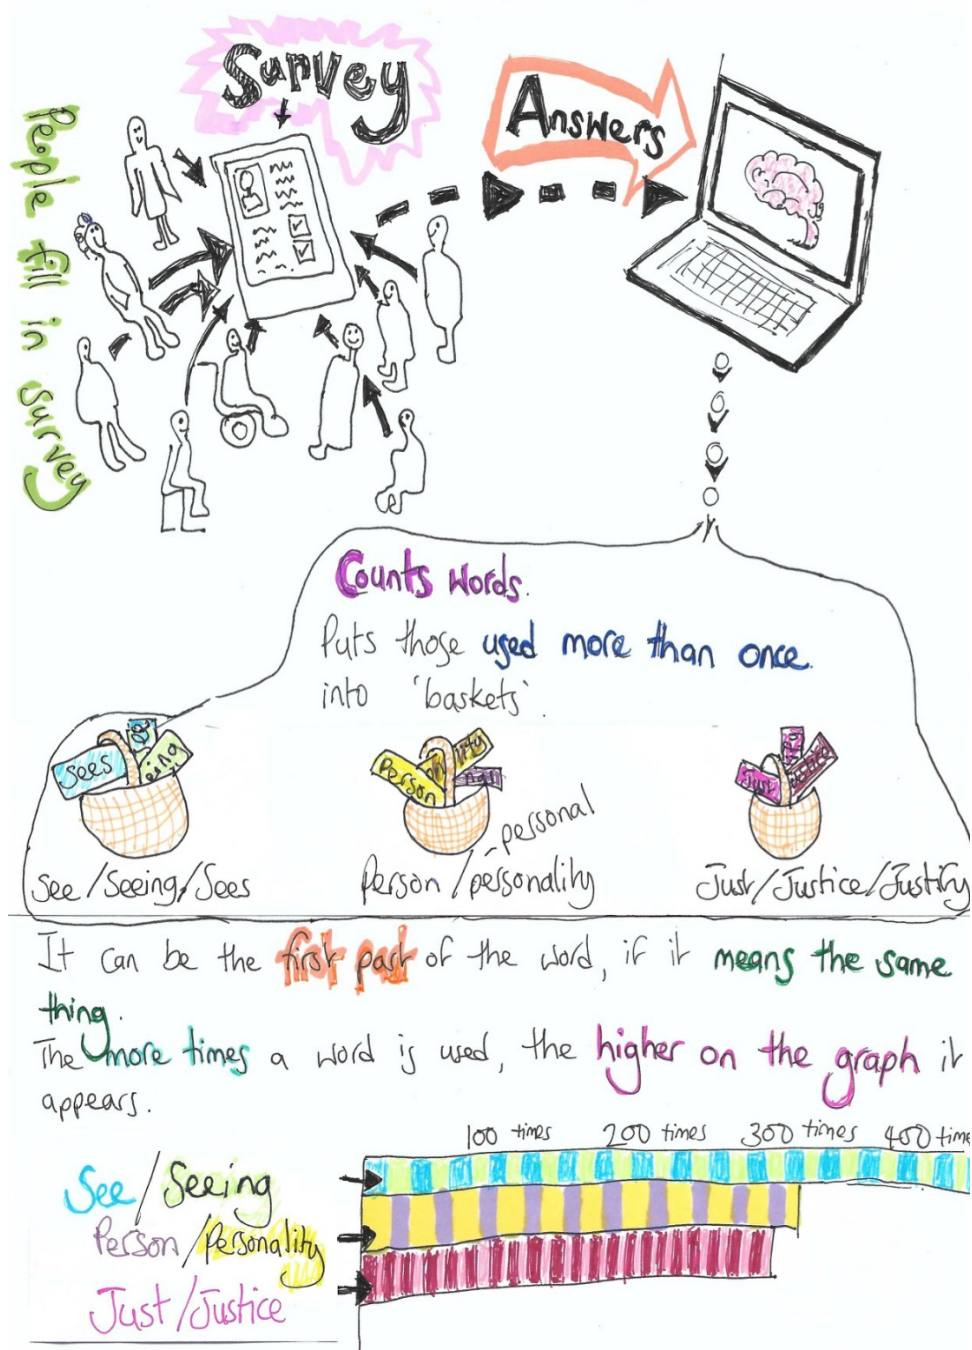 Survey
Answers
People fill in survey
Counts words.
Puts those used more than once
into 'baskets'.
Sees
eing
Person
Just
See/Seeing/Sees
Person/personality
personal
Just/Justice/Justify
It can be the first part of the word, if it means the same
thing.
The more times a word is used, the higher on the graph it
appears.
100 times 200 times 300 times 400 time
See/Seeing
Person/Personality
Just/Justice